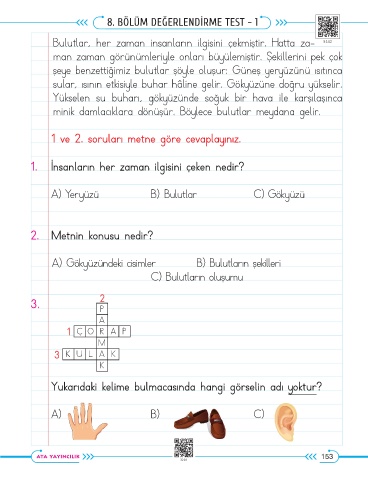 8. BÖLÜM DEĞERLENDİRME TEST - 1
Bulutlar, her zaman insanların ilgisini çekmiştir. Hatta za-
man zaman görünümleriyle onları büyülemiştir. Şekillerini pek çok
şeye benzettiğimiz bulutlar şöyle oluşur: Güneş yeryüzünü ısıtınca
sular, ısının etkisiyle buhar hâline gelir. Gökyüzüne doğru yükselir.
Yükselen su buharı, gökyüzünde soğuk bir hava ile karşılaşınca
minik damlacıklara dönüşür. Böylece bulutlar meydana gelir.
1 ve 2. soruları metne göre cevaplayınız.
1. İnsanların her zaman ilgisini çeken nedir?
A) Yeryüzü B) Bulutlar C) Gökyüzü
2. Metnin konusu nedir?
A) Gökyüzündeki cisimler B) Bulutların şekilleri
C) Bulutların oluşumu
3.
2
P
A
1 Ç O R A P
M
3 K U L A K
K
Yukarıdaki kelime bulmacasında hangi görselin adı yoktur?
A) B) C)
ATA YAYINCILIK
153